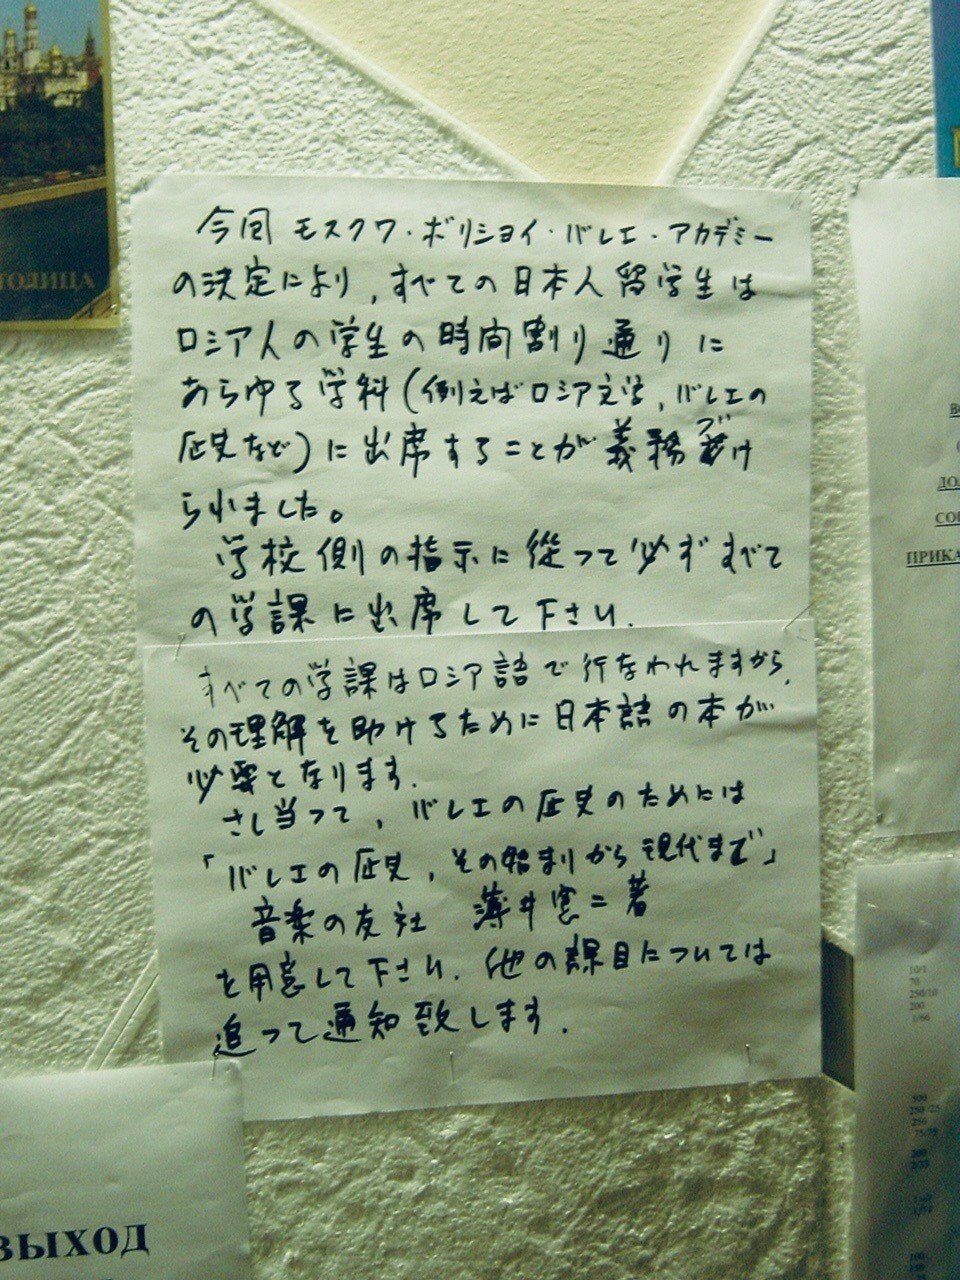 ТОЛИЦА
今回 モスクワ・ボリショイ・バレエ・アカデミー
の決定により, すべての日本人留学生は
ロシア人の学生の時間割り通りに
あらゆる学科(例えばロシア文学, バレエの
歴史など)に出席することが義務づけ
られました。
学校側の指示に従って必ずすべて
の学課に出席して下さい.
すべての学課はロシア語で行なわれますから,
その理解を助けるために日本語の本が
必要となります.
さし当って, バレエの歴史のためには
「バレエの歴史, その始まりから現代まで」
音楽の友社 薄井憲二著
を用意して下さい. 他の課目については
追って通知致します.
ДО
СО
ПРИКА
10/1
70
250/10
200
500
250/25
250
75/75
200
100
ВЫХОД